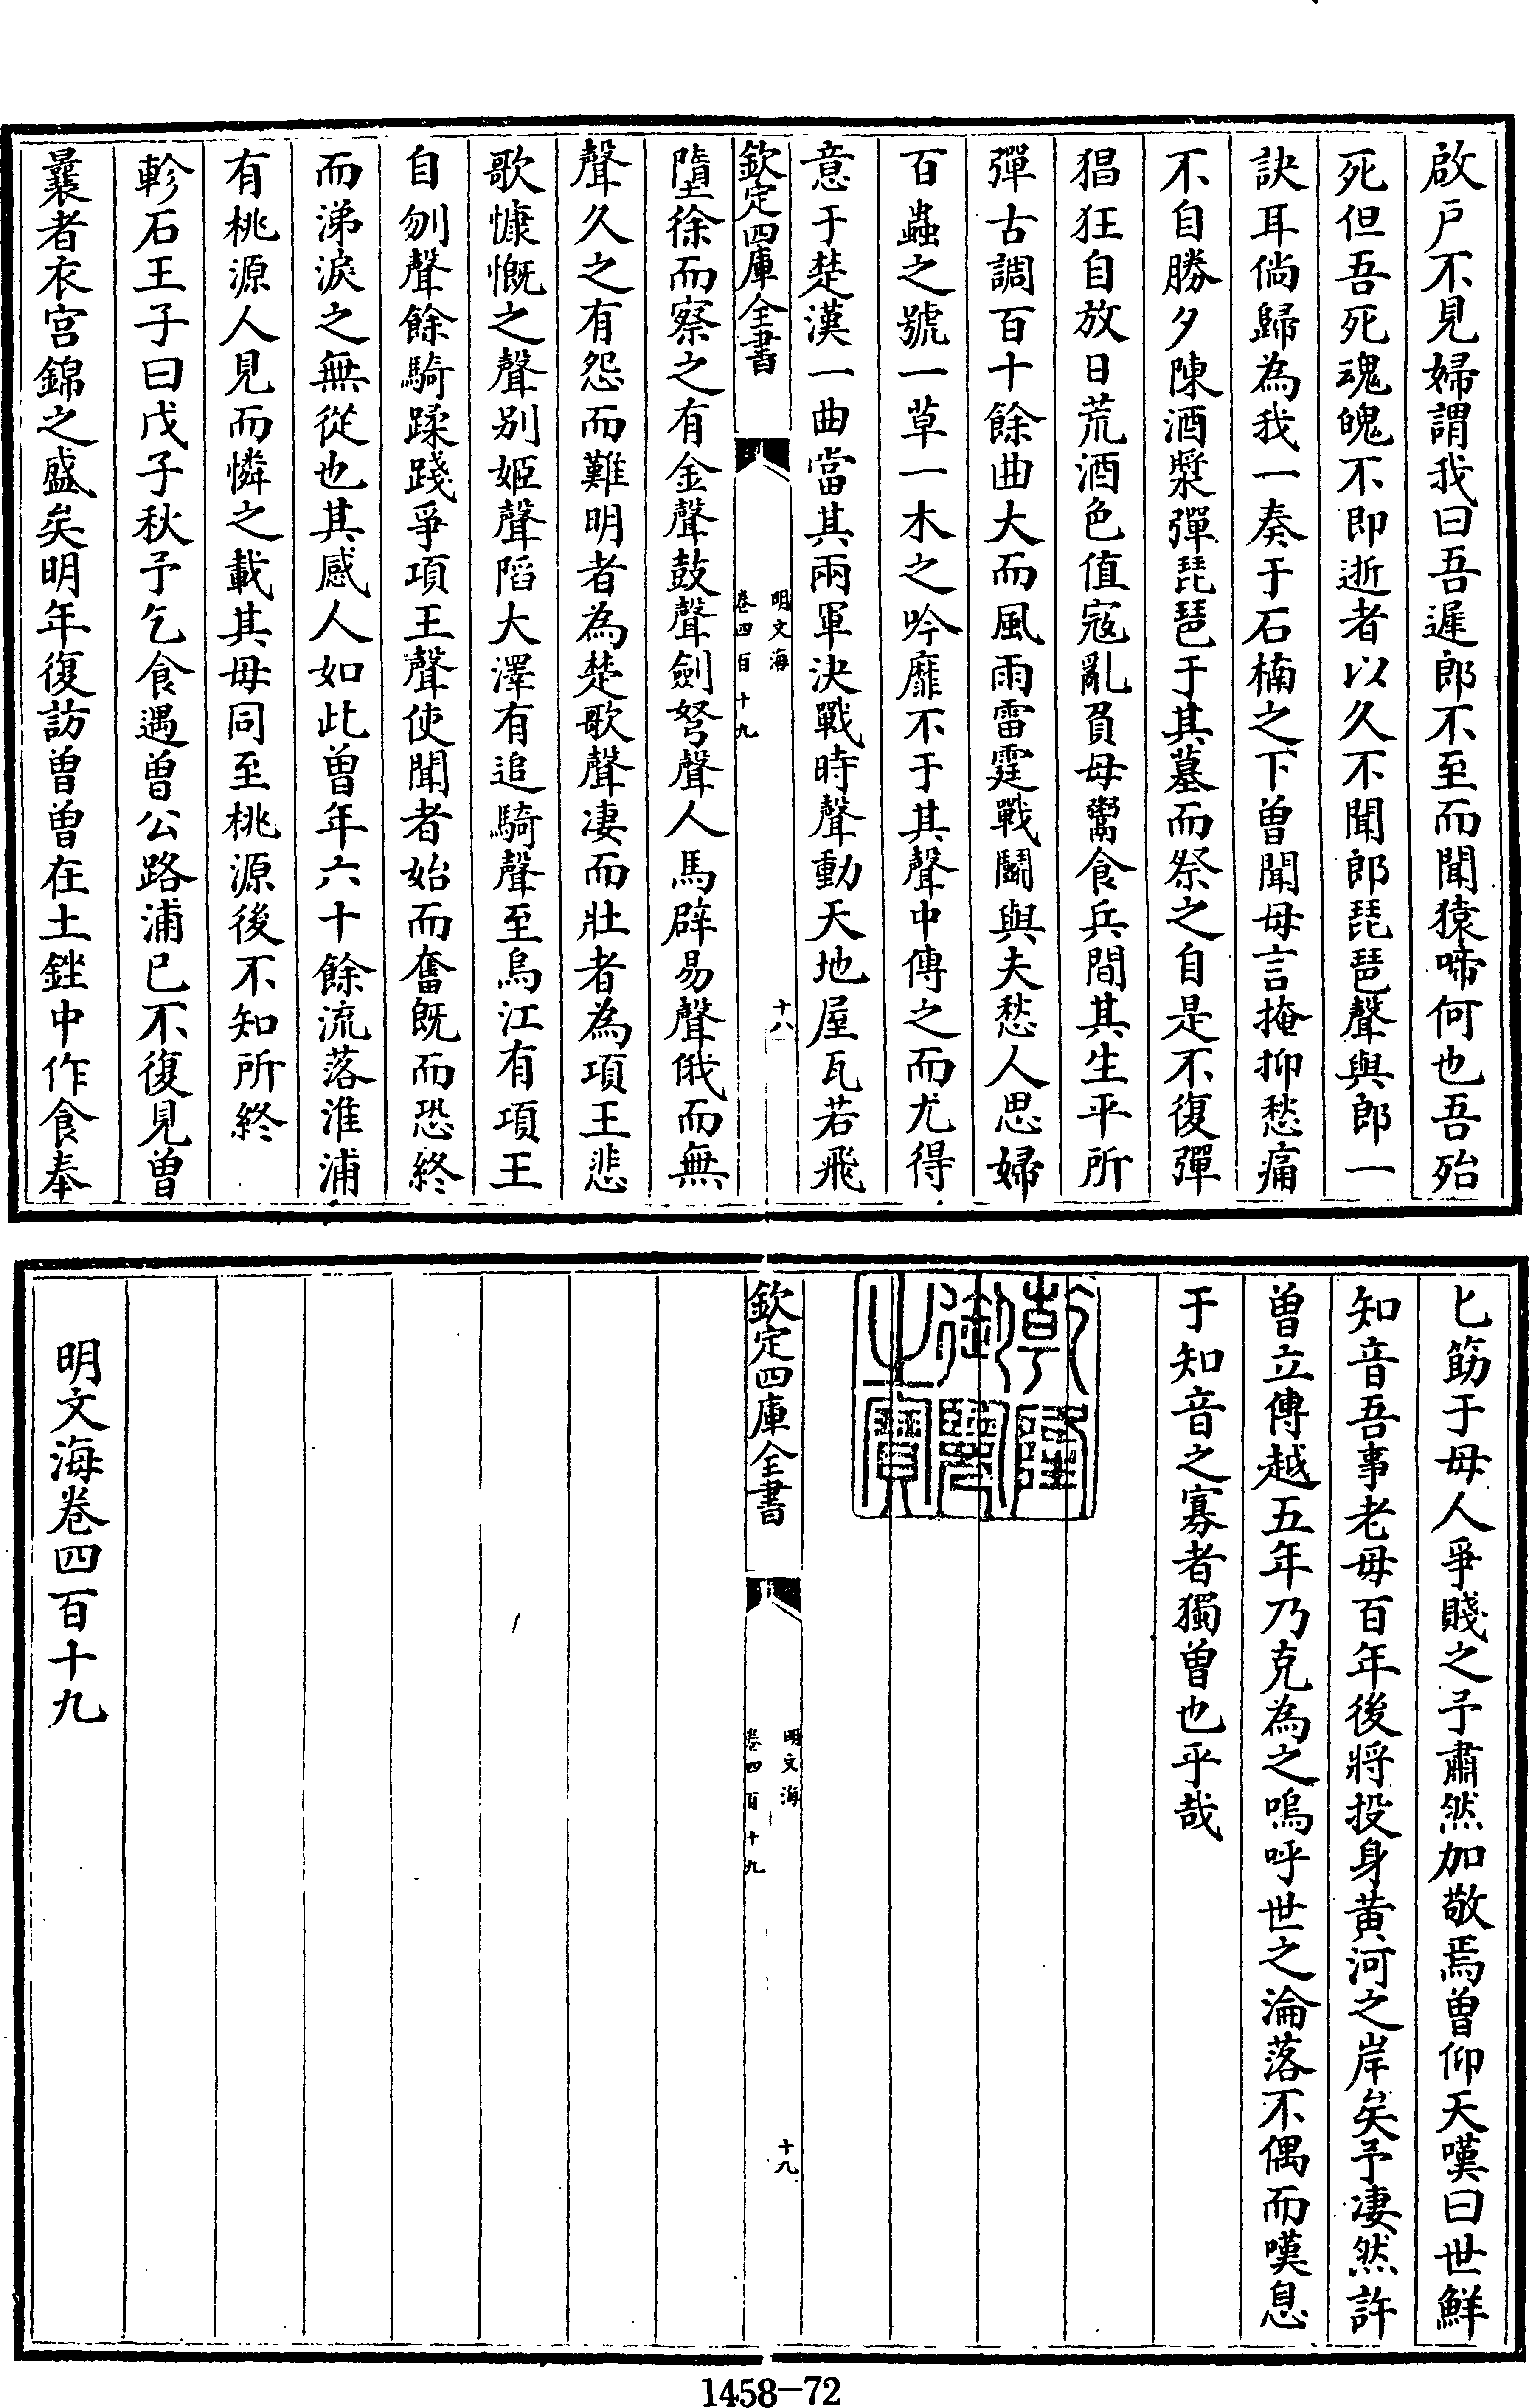 啟户不見婦謂我曰吾遲郎不至而聞猿啼何也吾殆
死但吾死魂魄不即逝者以久不聞郎琵琶聲與郎一
訣耳倘歸為我一奏于石楠之下曾聞母言掩抑愁痛
不自勝夕陳酒漿彈琵琶于其墓而祭之自是不復彈
猖狂自放日荒酒色值寇亂負母鬻食兵間其生平所
彈古調百十餘曲大而風雨雷霆戰鬭與夫愁人思婦
百蟲之號一草一木之吟靡不于其聲中傳之而尤得
意于楚漢一曲當其兩軍決戰時聲動天地屋瓦若飛
欽定四庫全書
明文海
卷四百十九
十八
墮徐而察之有金聲鼓聲劍弩聲人馬辟易聲俄而無
聲久之有怨而難明者為楚歌聲凄而壯者為項王悲
歌慷慨之聲别姬聲陷大澤有追騎聲至烏江有項王
自刎聲餘騎蹂踐爭項王聲使聞者始而奮既而恐終
而涕淚之無從也其感人如此曾年六十餘流落淮浦
有桃源人見而憐之載其母同至桃源後不知所終
軫石王子曰戊子秋予乞食遇曾公路浦已不復見曾
曩者衣宫錦之盛矣明年復訪曾曾在土銼中作食奉
匕筯于母人爭賤之予肅然加敬焉曾仰天嘆曰世鮮
知音吾事老母百年後將投身黄河之岸矣予凄然許
曾立傳越五年乃克為之嗚呼世之淪落不偶而嘆息
于知音之寡者獨曾也乎哉
乾隆御覽之寶
欽定四庫全書
明文海
卷四百十九
十九
明文海卷四百十九
1458-72